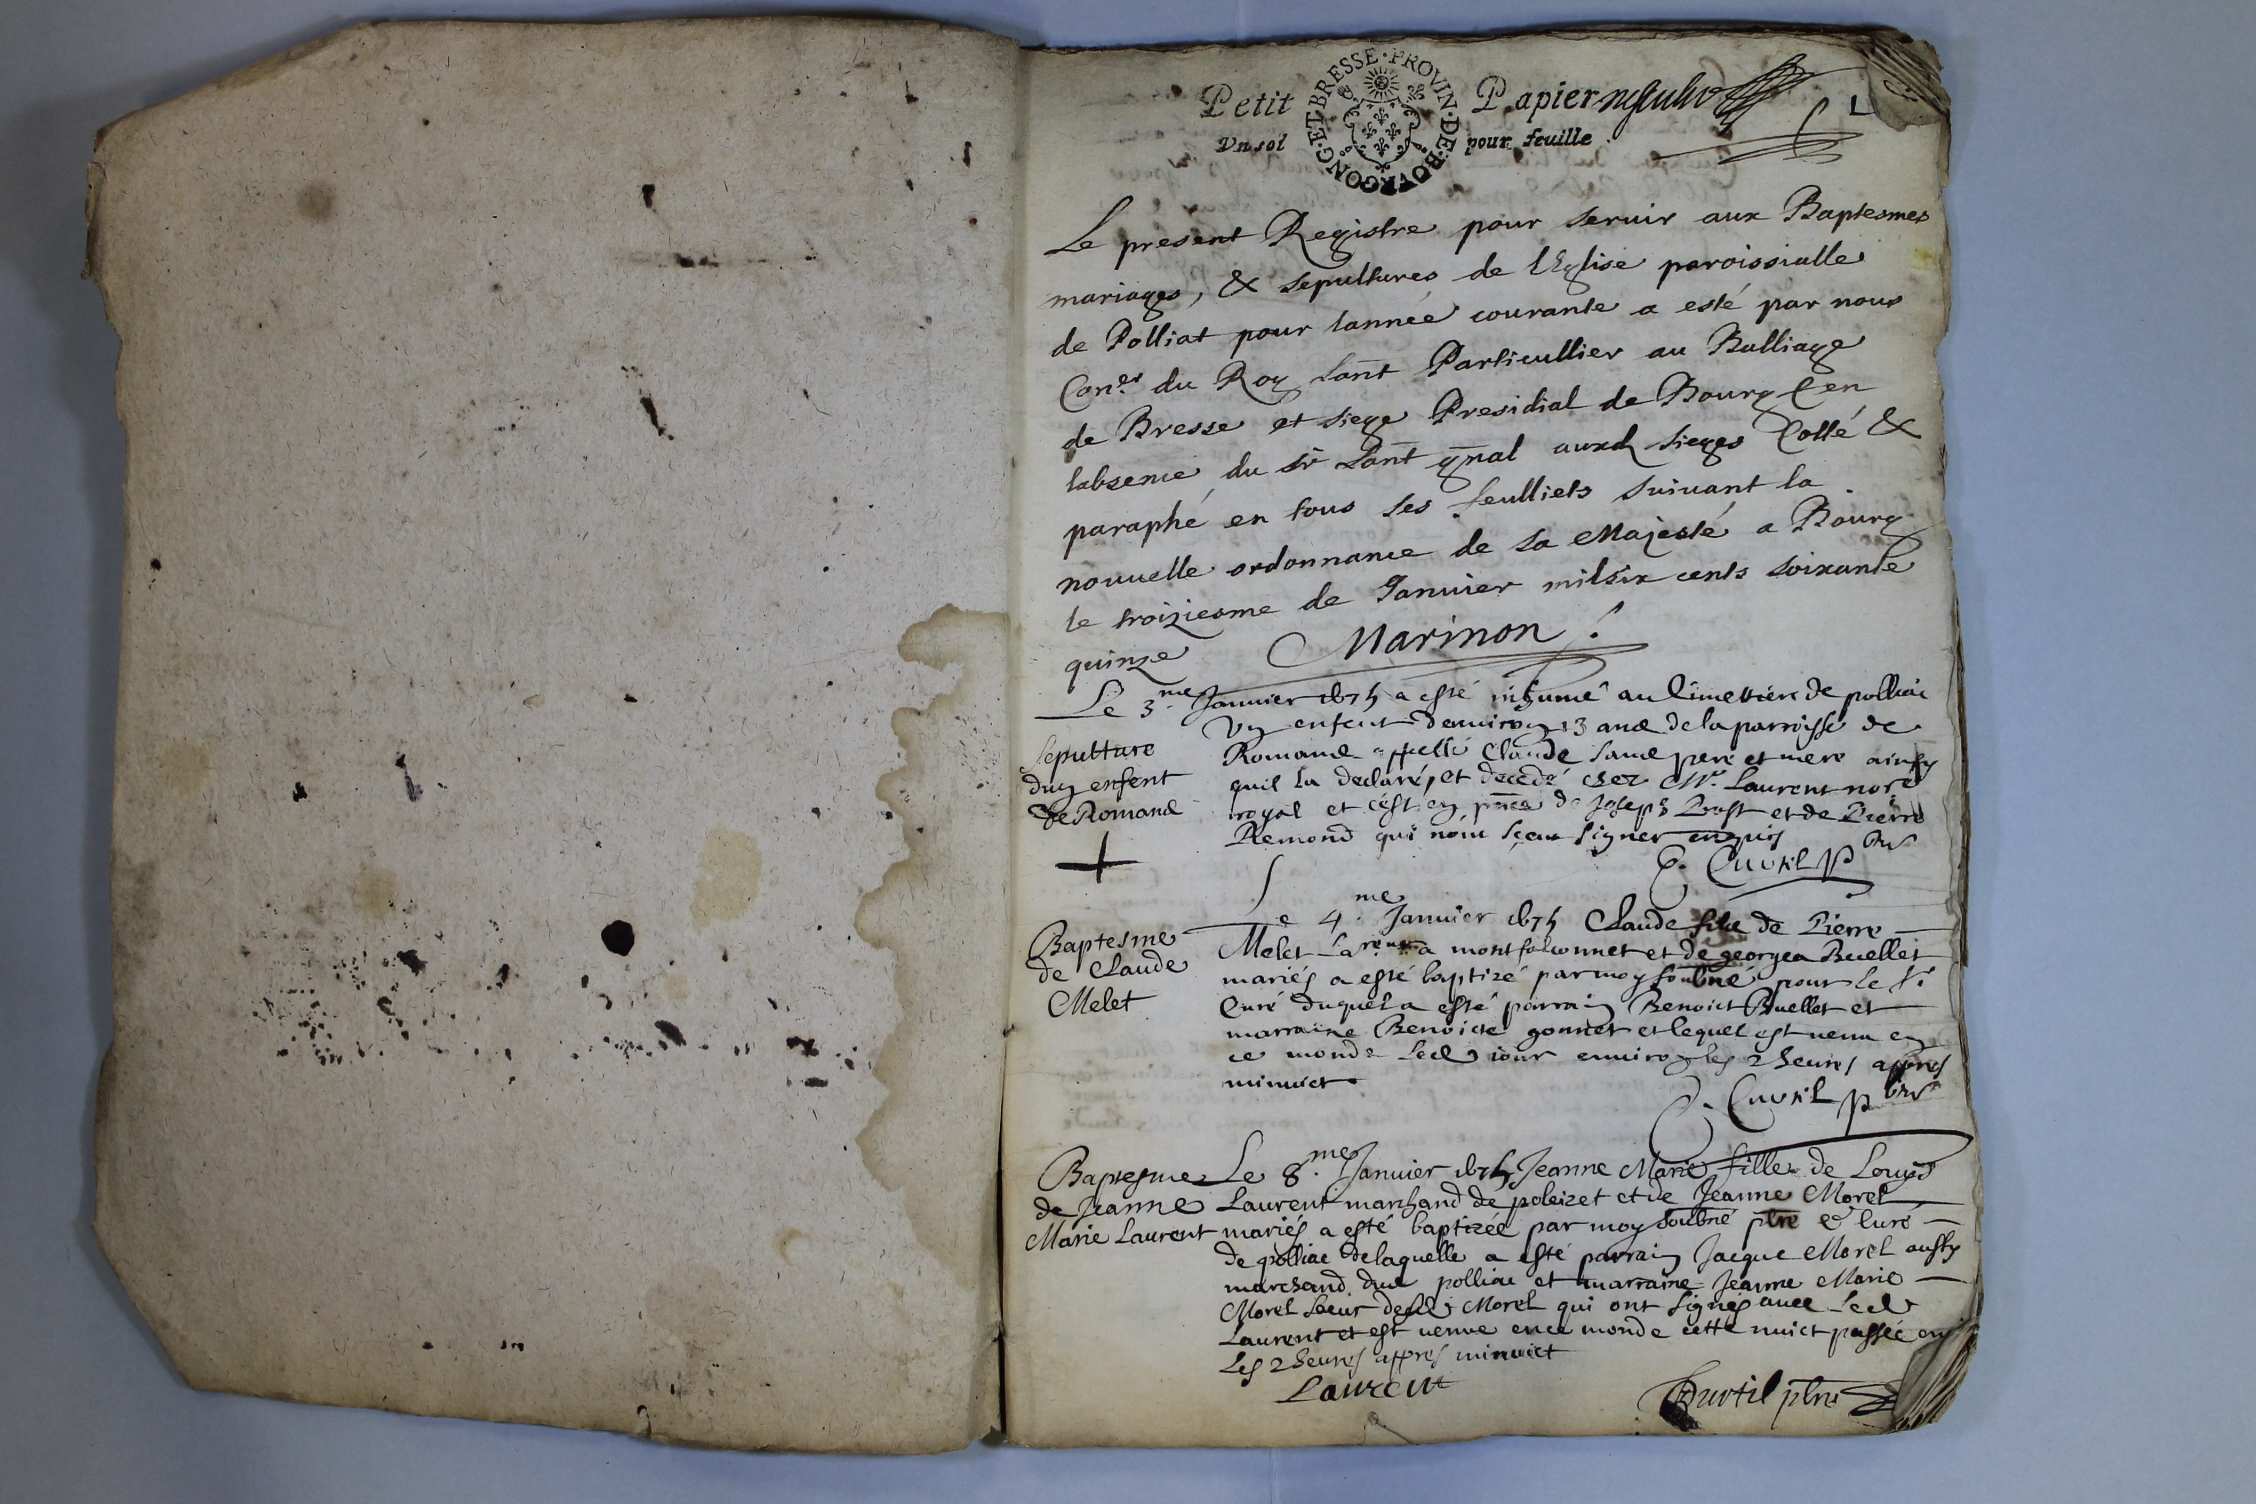 Petit Papier
BRESSE · PROVIN · DE · BOVRGONG · ET
Vn sol pour feuille
Le present Registre pour seruir aux Baptesmes
mariages, & sepultures de lEglise paroissialle
de Polliat pour lannée courante a esté par nous
Con.er du Roy Lant Particullier au Balliage
de Bresse et siege Presidial de Bourg en
labsence du sr Lant gnal auxd sieges Cotté &
paraphé en tous ses feulliets suiuant la
nouuelle ordonnance de sa Majesté a Bourg
le troiziesme de Januier mil six cents soixante
quinze Marinon
Le 3.me Januier 1675 a esté inhumé au Cimettiere de polliac
Vn enfent denuiron 13 ans de la parroisse de
Romans appellé Claude sans pere et mere ainsy
quil la declaré, et decedé chez Mr. Laurent nore
royal et cest en pnce de Joseph Prost et de Pierre
Remond qui nont sceu signer enquis
Sepulture
dun enfent
de Romans
C. Cuvtil pbre
Le 4.me Januier 1675 Claude fils de Pierre
Melet a montfalconnet et de georgea Buellet
mariés a esté baptizé par moy soubné pour le Sr
Curé duquel a esté parrain Benoict Buellet et
marraine Benoicte gonnet et lequel est venu en
ce monde led jour enuiron les 2 heures appres
minuict
Baptesme
de Claude
Melet
C. Cuvtil pbre
Le 8.me Januier 1675 Jeanne Marie fille de Louys
Laurent marchand de poleizet et de Jeanne Morel
mariés a esté baptizée par moy soubné ptre & Curé
de polliac de laquelle a esté parrain Jacque Morel aussy
marchand dud polliac et marraine Jeanne Marie
Morel soeur dud Morel qui ont signés auec led
Laurent et est venue en ce monde cette nuict passée en
les 2 heures appres minuict
Baptesme
de Jeanne
Marie Laurent
Laurent
Curtil ptre